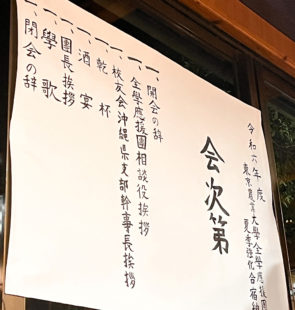 令和六年度
東京農業大學全學應援團
夏季強化合宿
会次第
一、開会の辞
一、全學應援團相談役挨拶
一、校友会沖縄県支部幹事長挨拶
一、乾杯
一、酒宴
一、團長挨拶
一、學歌
一、閉会の辞